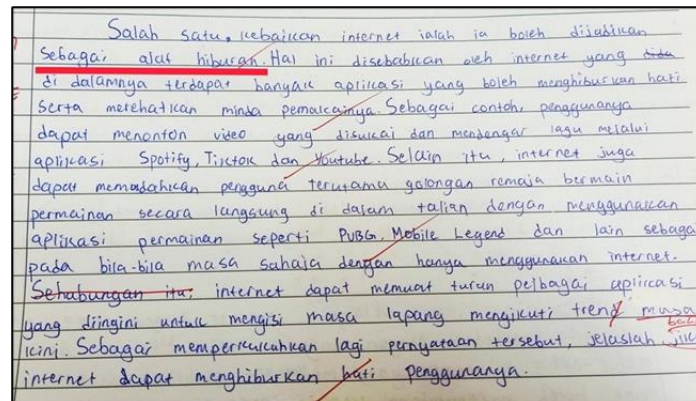 Salah satu kebaikan internet ialah ia boleh dijadikan
sebagai alat hiburan. Hal ini disebabkan oleh internet yang
di dalamnya terdapat banyak aplikasi yang boleh menghiburkan hati
serta merehatkan minda pemakainya. Sebagai contoh, penggunanya
dapat menonton video yang disukai dan mendengar lagu melalui
aplikasi Spotify, Tiktok dan Youtube. Selain itu, internet juga
dapat memudahkan pengguna terutama golongan remaja bermain
permainan secara langsung di dalam talian dengan menggunakan
aplikasi permainan seperti PUBG, Mobile Legend dan lain sebaga
pada bila-bila masa sahaja dengan hanya menggunakan internet.
Sehubungan itu, internet dapat memuat turun pelbagai aplikasi
yang diingini untuk mengisi masa lapang mengikuti trend masa
kini. Sebagai memperkukuhkan lagi pernyataan tersebut, jelaslah
internet dapat menghiburkan hati penggunanya.